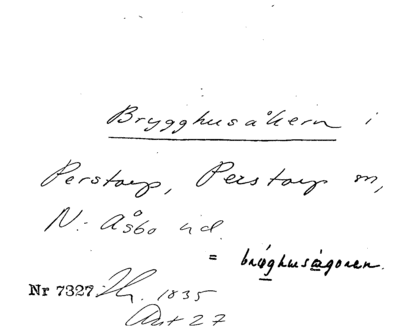 Brygghusåkern i
Perstorp, Perstorp sn,
N. Åsbo hd.
= brøghusågoren.
Nr 7327 1835
Akt 27